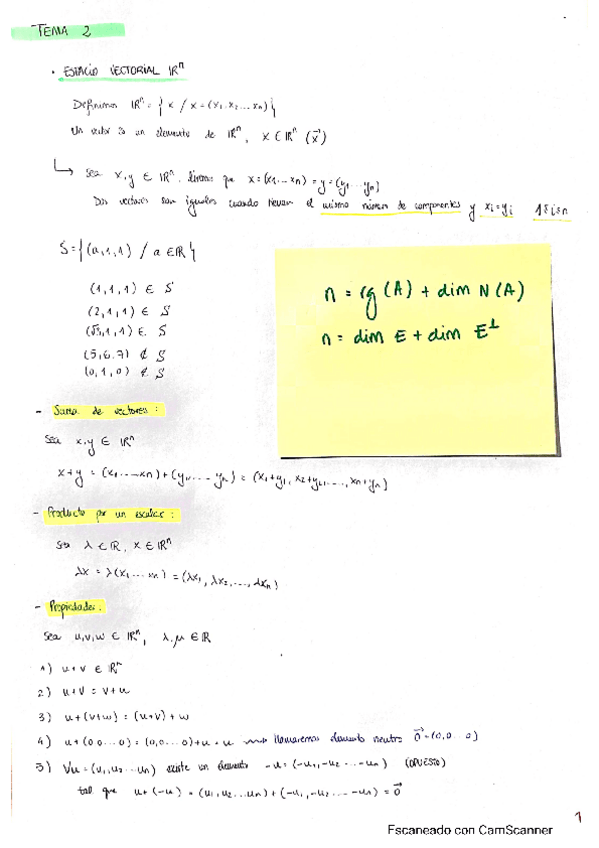 TEMA 2
• ESPACIO VECTORIAL ℝⁿ
Definimos ℝⁿ = { x / x = (x₁, x₂ ... xₙ) }
Un vector es un elemento de ℝⁿ, x ∈ ℝⁿ (x⃗)
↳ Sea x, y ∈ ℝⁿ. diremos que x = (x₁ ... xₙ) = y = (y₁ ... yₙ)
Dos vectores son iguales cuando tienen el mismo número de componentes y xᵢ = yᵢ 1 ≤ i ≤ n
S = { (a, 1, 1) / a ∈ ℝ }
(1, 1, 1) ∈ S
(2, 1, 1) ∈ S
(√3, 1, 1) ∈ S
(5, 6, 7) ∉ S
(0, 1, 0) ∉ S
n = rg (A) + dim N (A)
n = dim E + dim E⊥
- Suma de vectores :
Sea x, y ∈ ℝⁿ
x + y = (x₁ ... xₙ) + (y₁, ... yₙ) = (x₁ + y₁, x₂ + y₂, ..., xₙ + yₙ)
- Producto por un escalar :
Sea λ ∈ ℝ, x ∈ ℝⁿ
λx = λ(x₁ ... xₙ) = (λx₁, λx₂, ..., λxₙ)
- Propiedades.
Sea u, v, w ∈ ℝⁿ, λ, μ ∈ ℝ
1) u + v ∈ ℝⁿ
2) u + v = v + u
3) u + (v + w) = (u + v) + w
4) u + (0 0 ... 0) = (0, 0 ... 0) + u = u → llamaremos elemento neutro 0⃗ = (0, 0 ... 0)
5) ∀u = (u₁, u₂ ... uₙ) existe un elemento -u = (-u₁, -u₂ ... -uₙ) (OPUESTO)
tal que u + (-u) = (u₁, u₂ ... uₙ) + (-u₁, -u₂ ... -uₙ) = 0⃗
1
Escaneado con CamScanner